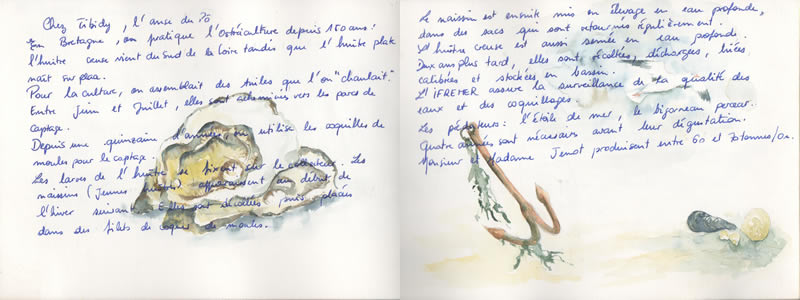 Chez Tibidy, l'anse du
En Bretagne, on pratique l'Ostréiculture depuis 150 ans!
l'huître creuse vient du Sud de la Loire tandis que l'huître plate
naît sur place.
Pour la culture, on assemblait des tuiles que l'on "chaulait."
Entre Juin et Juillet, elles sont acheminées vers les parcs de
captage.
Depuis une quinzaine d'années on utilise les coquilles de
moules pour le captage.
Les larves de l'huître se fixent sur le collecteur. Les
naissins (jeunes huîtres) apparaissent au début de
l'hiver suivant. Elles sont récoltées puis placées
dans des filets de coques de moules.
Le naissin est ensuite mis en élevage en eau profonde,
dans des sacs qui sont retournés régulièrement.
L'huître creuse est aussi semée en eau profonde.
Deux ans plus tard, elles sont récoltées, déchargées, triées,
calibrées et stockées en bassin.
L'IFREMER assure la surveillance de la qualité des
eaux et des coquillages.
Les prédateurs: l'étoile de mer, le bigorneau perceur.
Quatre années sont nécessaires avant leur dégustation.
Monsieur et Madame Jenot produisent entre 60 et 70 tonnes/an.